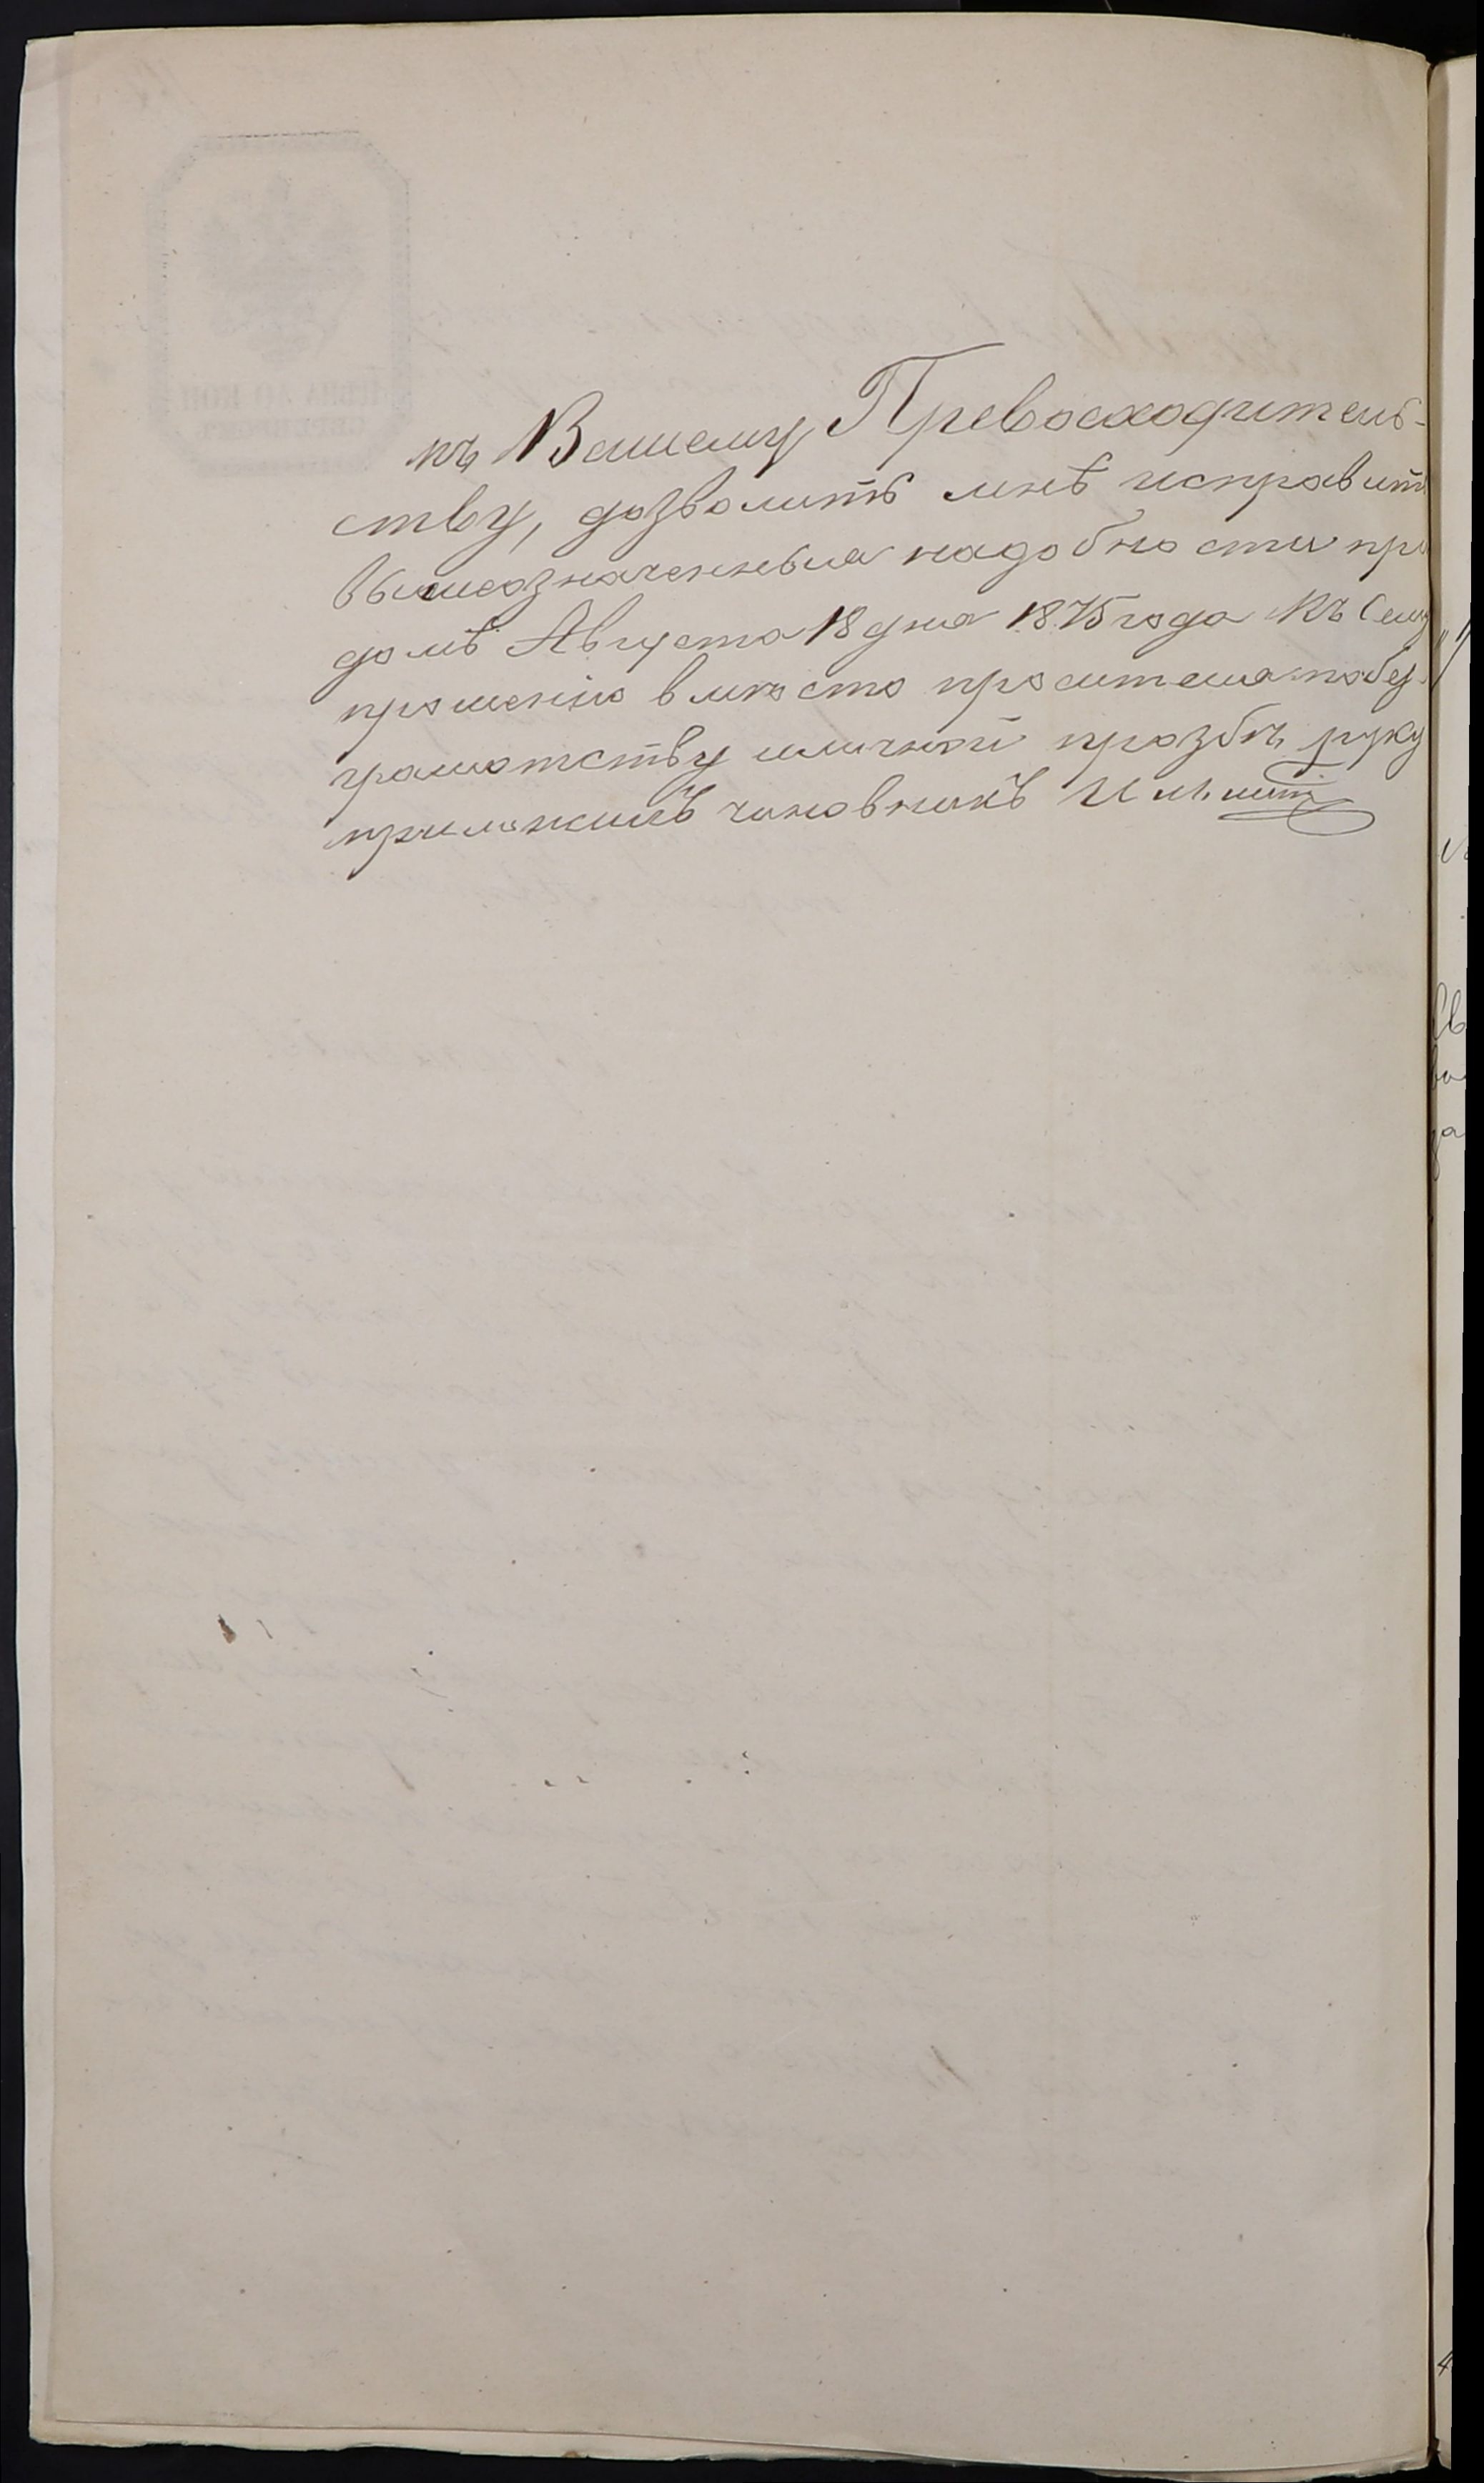 къ Вашему Превосходитель-
ству, дозволить мнѣ исправит
вышеозначенныя надобности при
домѣ Августа 18 дня 1875 года Къ Сему
прошенію вмѣсто просителя побез
грамотству иличной прозбѣ руку
приложилъ чиновникъ